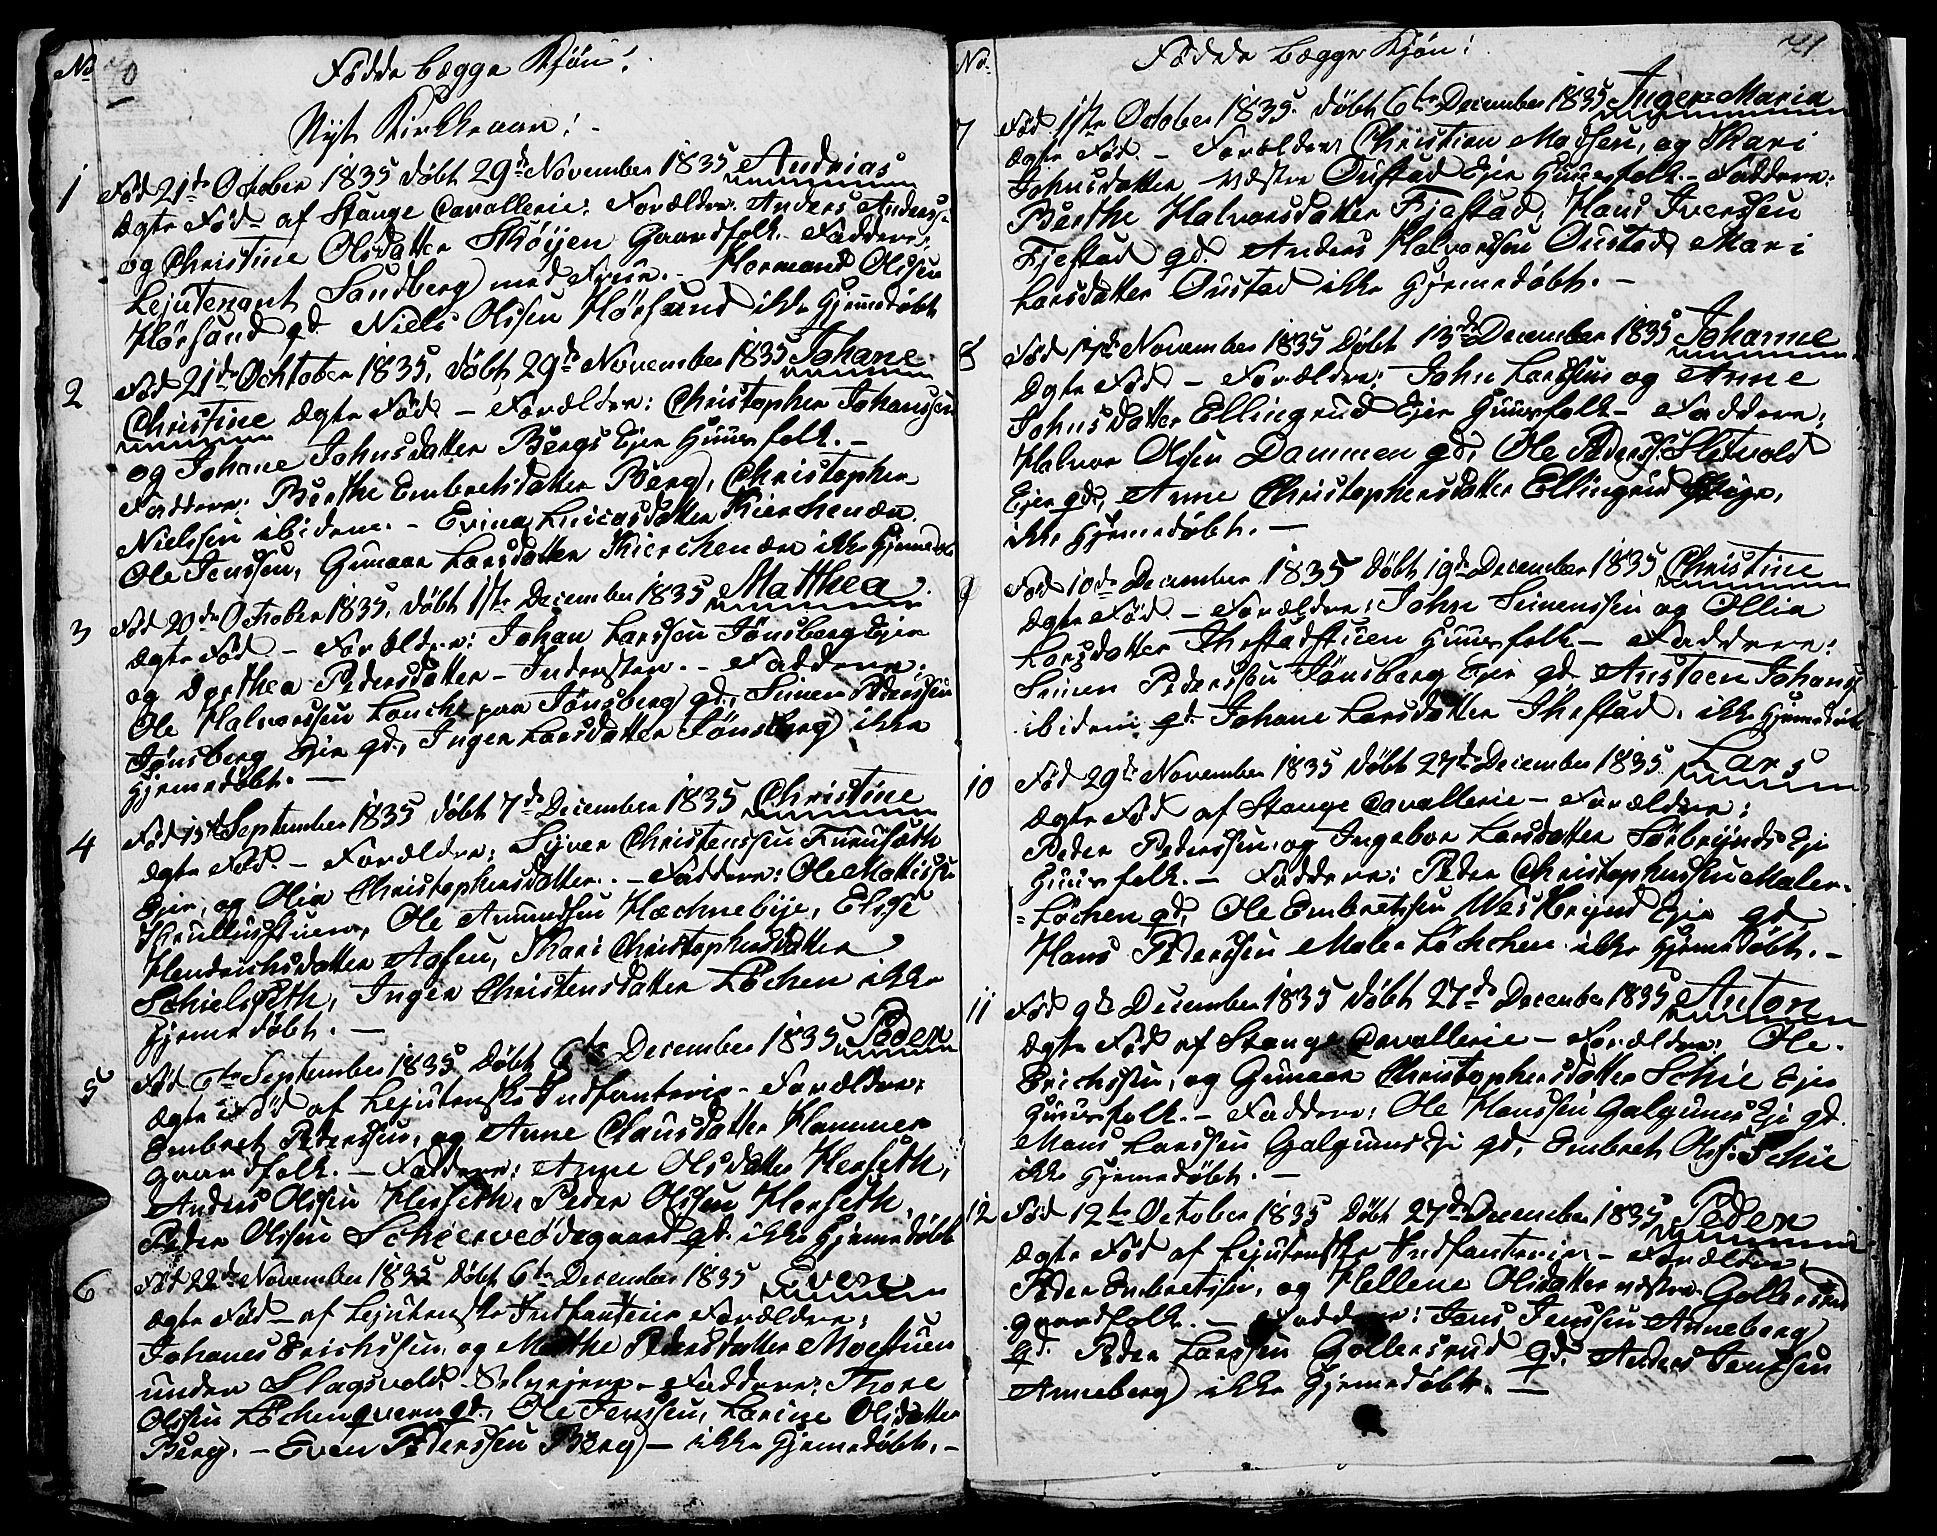 No 70 Fødde begge Kjøn!
Nyt Kirkeaar!
1 Fød 21de October 1835 døbt 29de November 1835 Andrias
ægte Fød af Stange Cavallerie: Forældre. Anders Anders-
og Christine Olsdatter Skøyen Gaardfolk. Faddere:
Lejutenant Sandberg med Frue. Hermand Olssen
Hørsand gd. Niels Olssen Hørsand ikke hjemmedøbt
2 Fød 21de Ochtober 1835, døbt 29de November 1835 Johane
Christine ægte Fød – Forældre: Christopher Johanssen
og Johane Johnsdatter Bergs Ejer Huusfolk. –
Faddere: Berthe Embretsdatter Berg, Christopher
Nielssen ibidem. – Evina Lucasdatter Kierchenær
Ole Jenssen, Gunaar Larsdatter Kierchenær ikke hjemmedøbt
3 Fød 20de October 1835, døbt 1ste December 1835 Matthea
ægte Fød – Forældre: Johan Larssen Jønsberg Ejer
og Dorthea Pedersdatter – Indersten. – Faddere:
Ole Halvorssen Louche paa Jønsberg gd., Simen Pederssen
Jønsberg Ejer gd., Inger Larsdatter Jønsberg ikke
hjemmedøbt. –
4 Fød September 1835 døbt 7de December 1835 Christine
ægte Fød. – Forældre: Syver Christenssen Furuseth
Ejer, og Olia Christophersdatter. – Faddere: Ole Mattisse
Ole Amundsen Hæchnebye, Elise
Hendrichsdatter Aasen, Kari Christophersdatter
Schielseth, Inger Christensdatter Løchen ikke
hjemmedøbt. –
5 Fød September 1835 døbt 6te December 1835 Peder
ægte Fød af Lejutenske Indfanterie – Forældre:
Embret Pederssen, og Anne Clausdatter Hammer
gaardfolk. – Faddere: Anne Olsdatter Herseth,
Anders Olssen Herseth, Peder Olssen Herseth,
Peder Olssen Schierveødegaard gd. ikke hjemmedøbt
6 Fød 22de November 1835 døbt 6te December 1835 Even
ægte Fød – af Lejutenske Indfanterie Forældre:
Johanes Erichssen, og Marthe Pedersdatter Moestuen
under Slagsvold – Faddere: Thore
Olssen Løchenqvern gd., Ole Jenssen, Larine Olsdatter
Berg. – Even Pederssen Berg – ikke hjemmedøbt. –
No. Fødde begge Kjøn! 71
7 Fød 1ste October 1835. døbt 6te December 1835 Inger Maria
ægte Fød. – Forældre Christian Madsen, og Kari
Johnsdatter Westre Oustad Ejer Huusfolk – Faddere:
Berthe Halvorsdatter Fjestad, Hans Iverssen
Fjestad gd. Anders Halvorssen Oustad, Mari
Larsdatter Oustad ikke hjemmedøbt. –
8 Fød November 1835 døbt 13de December 1835 Johanne
ægte Fød – Forældre: John Larssen og Anne
Johnsdatter Ellingrud Ejer Huusfolk – Faddere:
Halvor Olssen Dammen gd, Ole Pederss: Sletvold
Ejer gd., Anne Christophersdatter Ellingrud Pige,
ikke hjemmedøbt. –
9 Fød 10de December 1835 døbt 19de December 1835 Christine
ægte Fød – Forældre: John Simenssen og Ollia
Larsdatter Thestadstuen Huusfolk – Faddere:
Simen Pederssen Jønsberg Ejer gd. Austeen Johans
ibidem gd Johane Larsdatter Thestad. ikke hjemmedøbt
10 Fød 29de November 1835 døbt 27de December 1835 Lars
ægte Fød af Stange Cavallerie – Forældre:
Peder Pederssen, og Ingebor Larsdatter Sørbrynds Eje
Huusfolk. – Faddere: Peder Christopherssen Maler-
=Løchen gd, Ole Embretssen Westbrynd Ejer gd
Hans Pederssen Malerløchen ikke hjemmedøbt. –
11 Fød 9de December 1835 døbt 27de December 1835 Anton
ægte Fød af Stange Cavallerie – Forældre: Ole
Erichssen, og Gunaar Christophersdatter Schie Ejer
Huusfolk. – Faddere: Ole Hanssen Galgums Eje gd.
Mons Larssen Galgums Eje gd, Embret Olss: Schie
ikke hjemmedøbt. –
12 Fød 12te October 1835 døbt 27de December 1835 Peder
ægte Fød af Lejutenske Indfanterie – Forældre,
Peder Embretssen, og Hellene Olsdatter Gollersrud
gaardfolk. – Faddere: Jens Jenssen Anneberg
gd. Peder Larssen Gollersrud gd. Anders Jenssen
Anneberg ikke hjemmedøbt. –